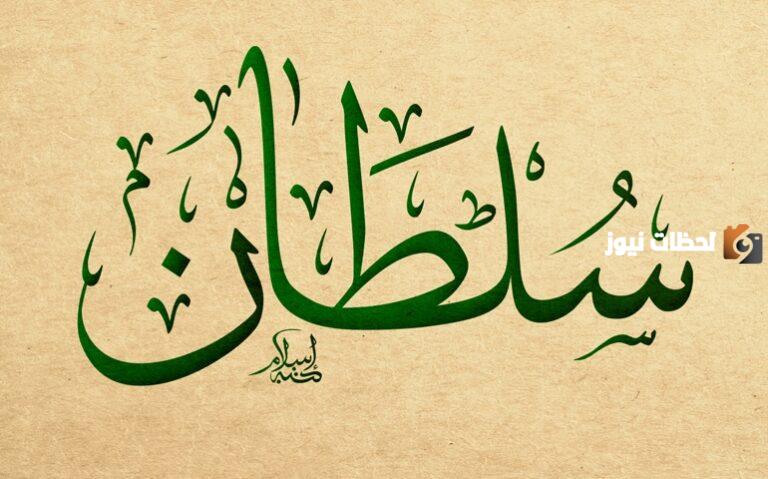 سُلطان
لحظات نيوز
كتبه إسلام